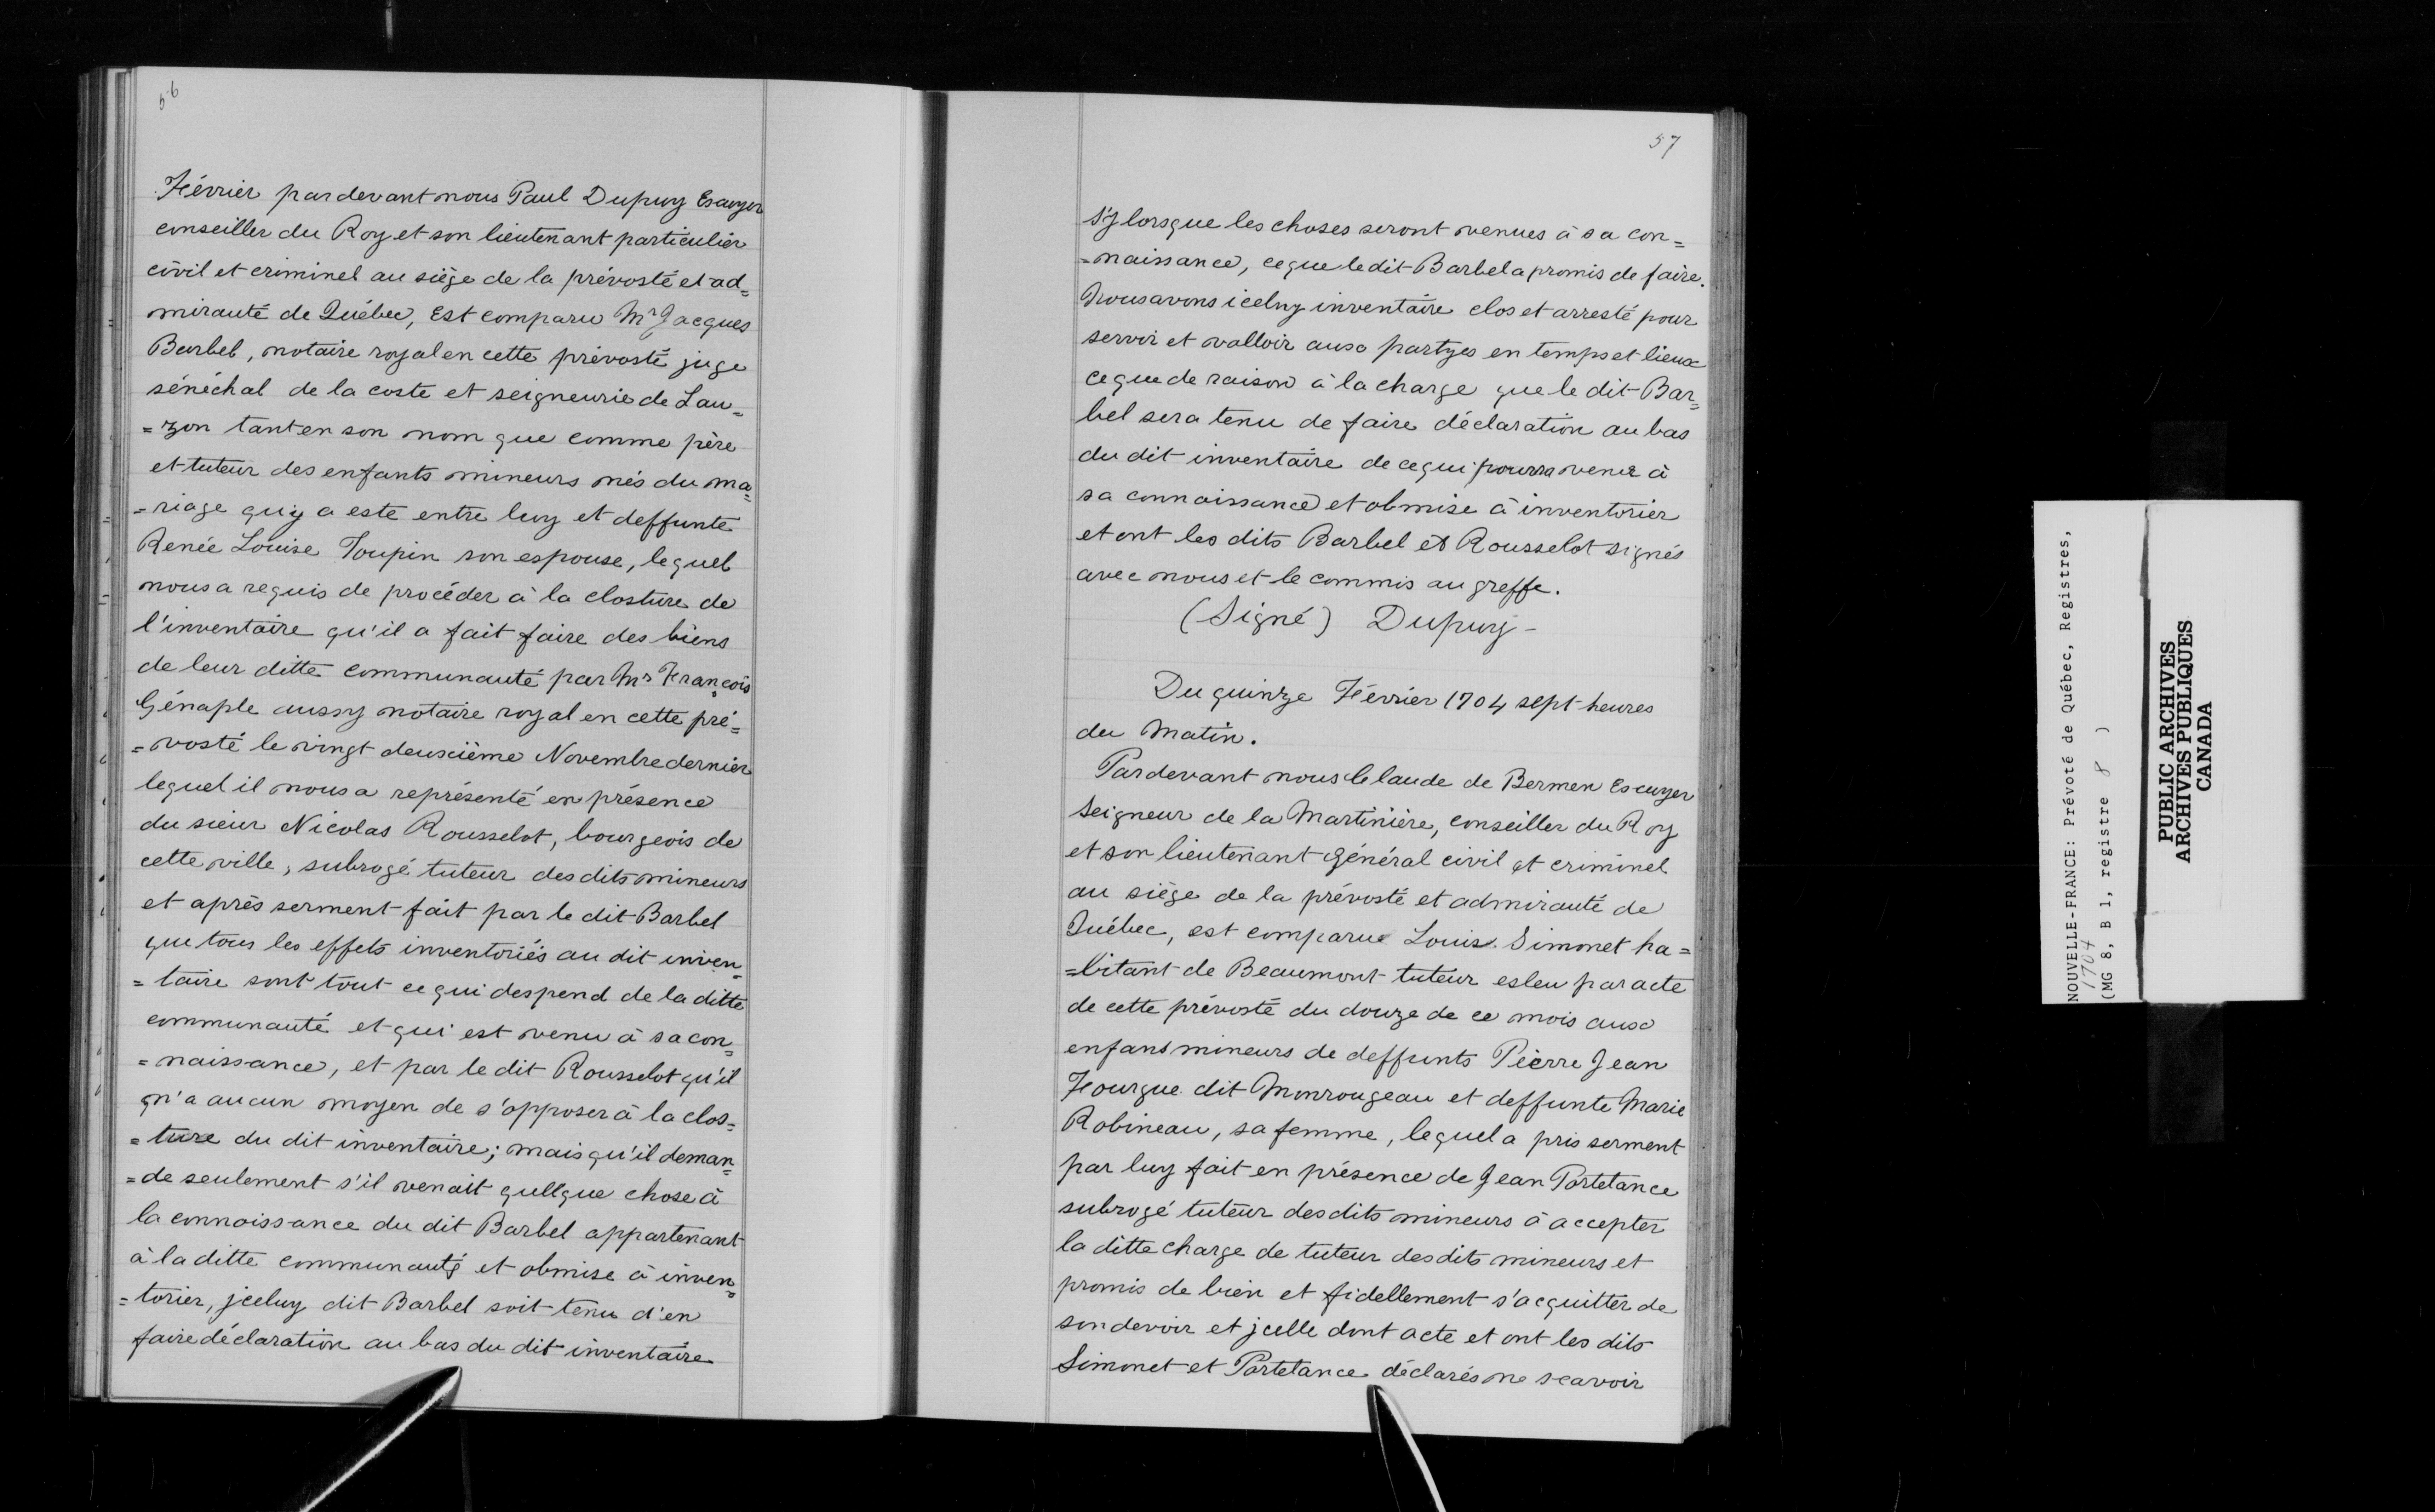 56
Février pardevant nous Paul Dupuy Escuyer
conseiller du Roy et son lieutenant particulier
civil et criminel au siège de la prévosté et ad=
mirauté de Québec, Est comparu Mr Jacques
Barbel, notaire royal en cette prévosté juge
sénéchal de la coste et seigneurie de Lau=
=zon tant en son nom que comme père
et tuteur des enfants mineurs nés du ma=
=riage quy a este entre luy et deffunte
Renée Louise Toupin son espouse, lequel
nous a requis de procéder à la closture de
l'inventaire qu'il a fait faire des biens
de leur ditte communauté par Mr François
Génaple aussy notaire royal en cette pré=
=vosté le vingt deuxième Novembre dernier
lequel il nous a représenté en présence
du sieur Nicolas Rousselot, bourgeois de
cette ville, subrogé tuteur des dits mineurs
et après serment fait par le dit Barbel
que tous les effets inventoriés au dit inven=
=taire sont tout ce qui despend de la ditte
communauté et qui est venu à sa con=
=naissance, et par le dit Rousselot qu'il
n'a aucun moyen de s'opposer à la clos=
=ture du dit inventaire; mais qu'il deman=
=de seulement s'il venait quelque chose à
la connoissance du dit Barbel appartenant
à la ditte communauté et obmise à inven=
=torier, jceluy dit Barbel soit tenu d'en
faire déclaration au bas du dit inventaire
57
s'y lorsque les choses seront venues à sa con=
=naissance, ce que le dit Barbel a promis de faire.
Nous avons iceluy inventaire clos et arresté pour
servir et valloir aux partyes en temps et lieux
ce que de raison à la charge que le dit Bar=
bel sera tenu de faire déclaration au bas
du dit inventaire de ce qui pourra venir à
sa connoissance et obmise à inventorier
et ont les dits Barbel et Rousselot signés
avec nous et le commis au greffe.
(Signé) Dupuy-
Du quinze Février 1704 sept heures
du Matin.
Pardevant nous Claude de Bermen Escuyer
Seigneur de la Martinière, conseiller du Roy
et son lieutenant Général civil et criminel
au siège de la prévosté et admirauté de
Québec, est comparue Louis Simonet ha=
=bitant de Beaumont tuteur esleu par acte
de cette prévosté du douze de ce mois aux
enfans mineurs de deffunts Pierre Jean
Fourgue dit Monrougeau et deffunte Marie
Robineau, sa femme, lequel a pris serment
par luy fait en présence de Jean Portetance
subrogé tuteur desdits mineurs à accepter
la ditte charge de tuteur desdits mineurs et
promis de bien et fidellement s'acquitter de
son devoir et jcelle dont acte et ont les dits
Simonet et Portetance déclarés ne scavoir
NOUVELLE-FRANCE: Prévoté de Québec, Registres,
1704
(MG 8, B 1, registre 8 )
PUBLIC ARCHIVES
ARCHIVES PUBLIQUES
CANADA